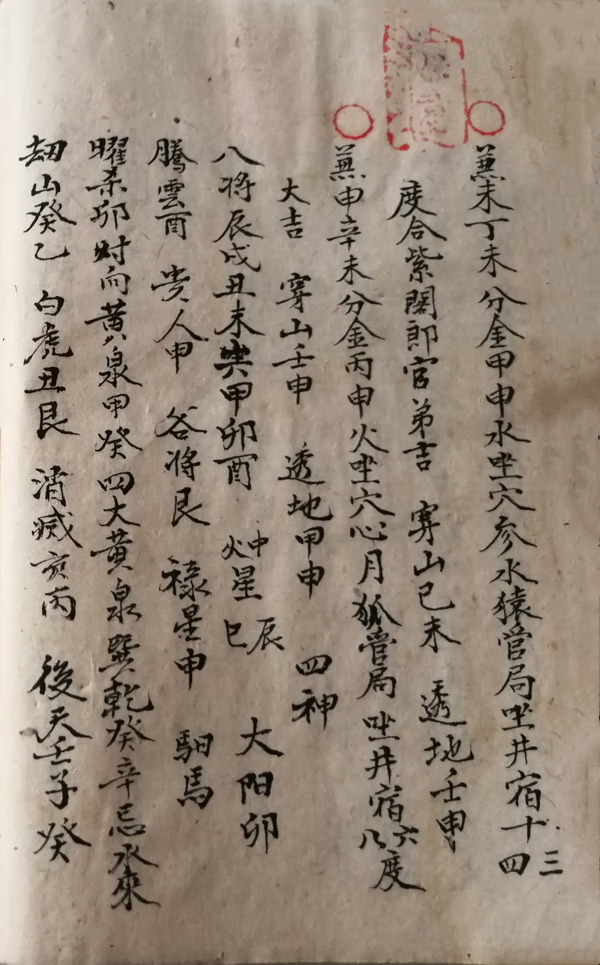 兼未丁未分金甲申水坐穴参水猿管局坐井宿十三四
度合紫関郎官弟吉 穿山己未 透地壬申
兼申辛未分金丙申火坐穴心月狐管局坐井宿六八度
大吉 穿山壬申 透地甲申 四神
八将辰戌丑未寅甲卯酉 火星中辰巳 大阳卯
騰雲酉 贵人申 谷将艮 禄星申 馹馬
曜杀卯 对向黄泉甲癸 四大黄泉巽乾癸辛忌水來
刼山癸乙 白虎丑艮 消滅亥丙 後天壬子癸